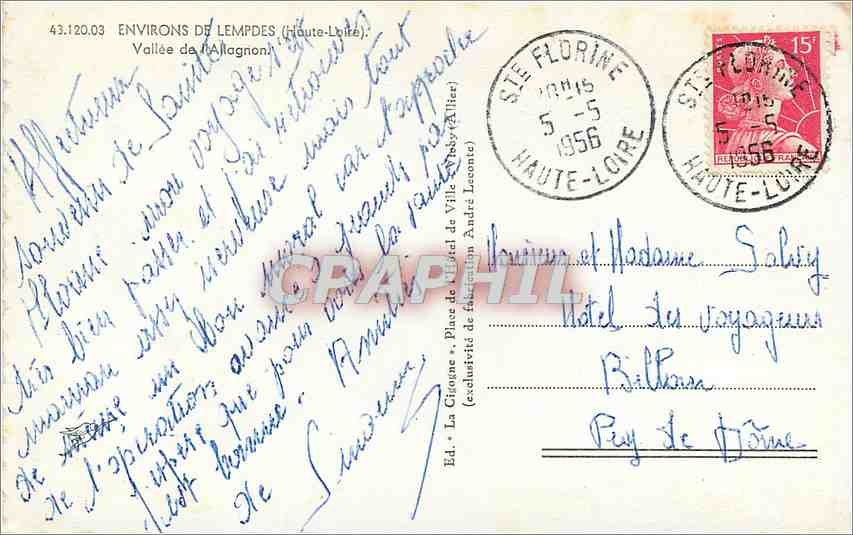 43.120.03 ENVIRONS DE LEMPDES (Haute-Loire).
Vallée de l'Allagnon.
Affectueux
souvenir de Sainte
Florine mon voyage s'est
très bien passé et j'ai retrouvé
maman assez nerveuse mais tout
de même un bon moral car l'approche
de l'opération avance
J'espère que pour vous la santé
est bonne. Amitiés
de Simone
Ed. " La Cigogne ", Place de l'Hôtel de Ville Vichy (Allier)
(exclusivité de fabrication André Leconte)
STE FLORINE
5 -5
1956
HAUTE-LOIRE
STE FLORINE
5 -5
1956
HAUTE-LOIRE
15F
Monsieur et Madame
Hôtel des Voyageurs
Billom
Puy de Dôme
CRAPHIL